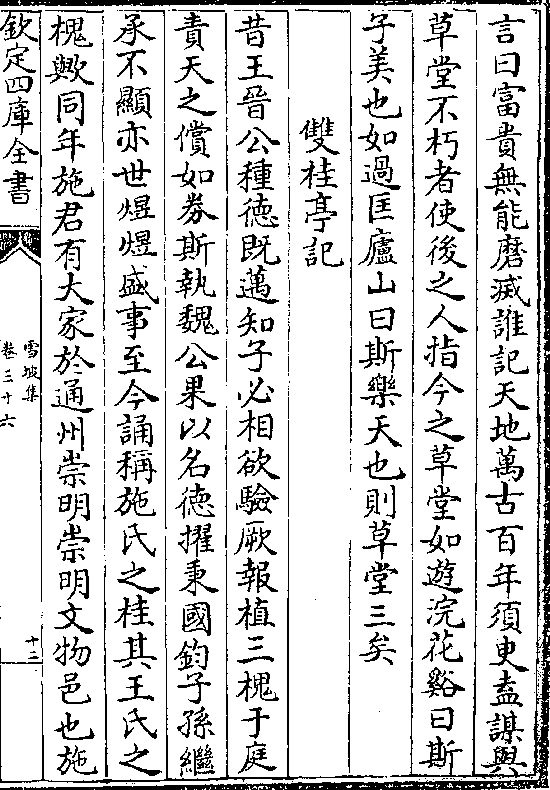 言曰富貴無能磨滅誰記天地萬古百年須臾盍謀與
草堂不朽者使後之人指今之草堂如遊浣花谿曰斯
子美也如過匡廬山曰斯樂天也則草堂三矣
雙桂亭記
昔王晉公種德既邁知子必相欲驗厥報植三槐于庭
責天之償如券斯執魏公果以名德擢秉國鈞子孫繼
承不顯亦世煜煜盛事至今誦稱施氏之桂其王氏之
槐歟同年施君有大家於通州崇明崇明文物邑也施
欽定四庫全書
雪坡集
卷三十六
十二